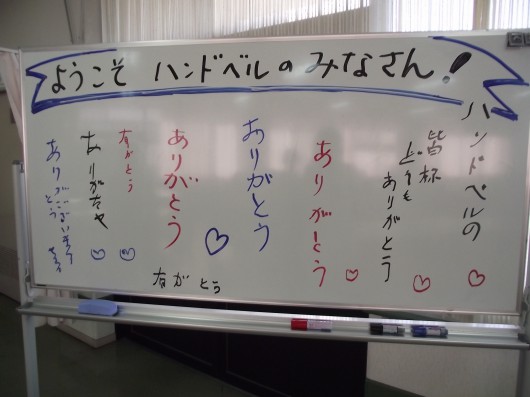 ようこそ ハンドベルのみなさん!
ハンドベルの
皆杯
上手も
ありがとう
ありがとう
ありがとう
ありがとう
ながとう
ありがたや
ありがとうございます
ながとう